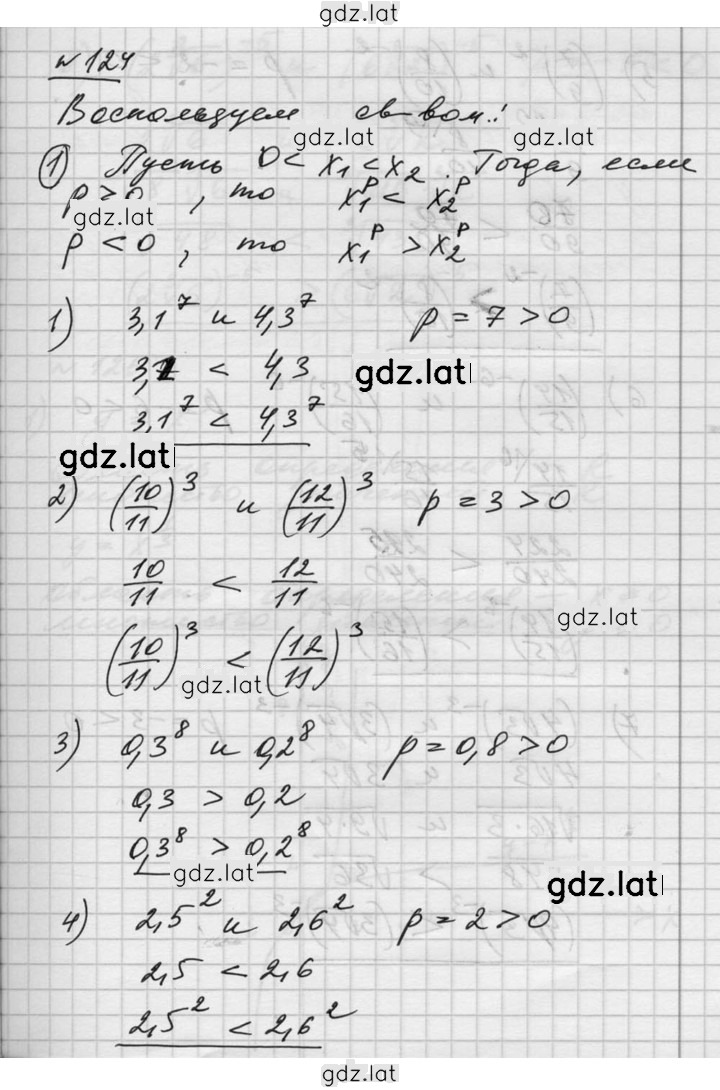 gdz.lat
№124
Воспользуемся св-вом:
gdz.lat gdz.lat
① Пусть 0 < x₁ < x₂. Тогда, если
p > 0, то x₁ᵖ < x₂ᵖ
gdz.lat
p < 0, то x₁ᵖ > x₂ᵖ
1) 3,1⁷ и 4,3⁷ p = 7 > 0
3,1 < 4,3
gdz.lat
3,1⁷ < 4,3⁷
gdz.lat
2) (10/11)³ и (12/11)³ p = 3 > 0
10/11 < 12/11
gdz.lat
(10/11)³ < (12/11)³
gdz.lat
3) 0,3⁸ и 0,2⁸ p = 0,8 > 0
0,3 > 0,2
0,3⁸ > 0,2⁸
gdz.lat
gdz.lat
4) 2,5² и 2,6² p = 2 > 0
2,5 < 2,6
2,5² < 2,6²
gdz.lat